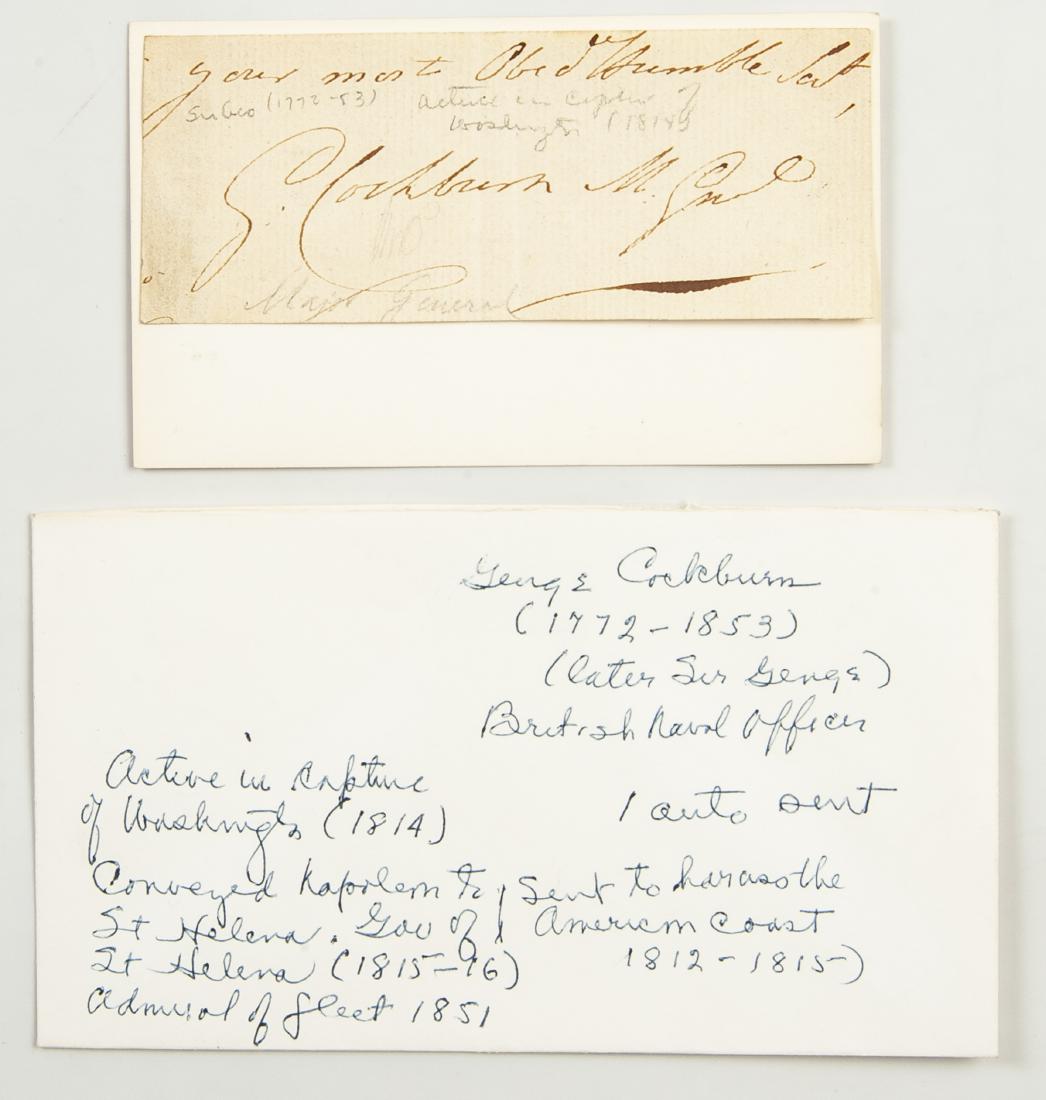 your most Obed Humble Sert,
Sir Geo (1772-53) active in capture of
Washington (1814)
G. Cockburn M. Genl
Major General
George Cockburn
(1772-1853)
(later Sir George)
British Naval Officer
Active in capture
of Washington (1814)
1 auto sent
Conveyed Napoleon to
St Helena. Gov of
St Helena (1815-16)
Admiral of fleet 1851
Sent to harass the
American Coast
1812-1815)